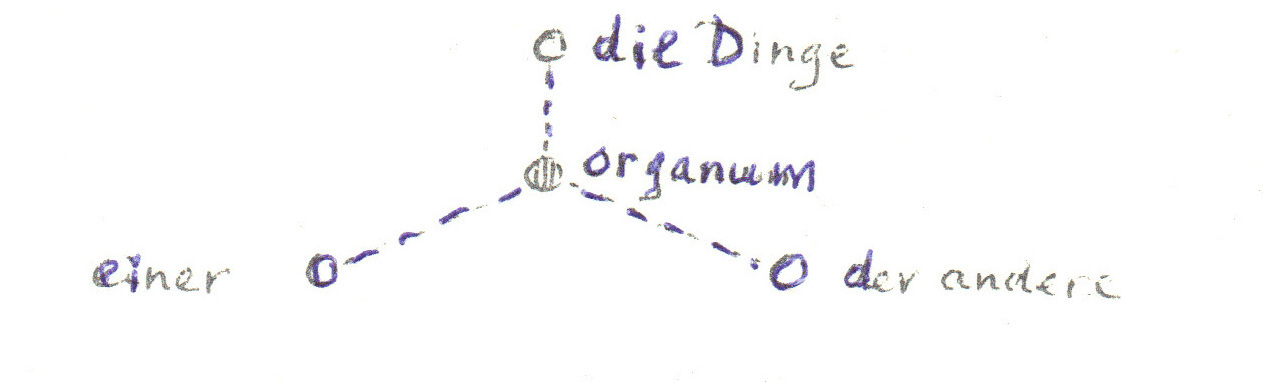 die Dinge
organum
einer
der andere